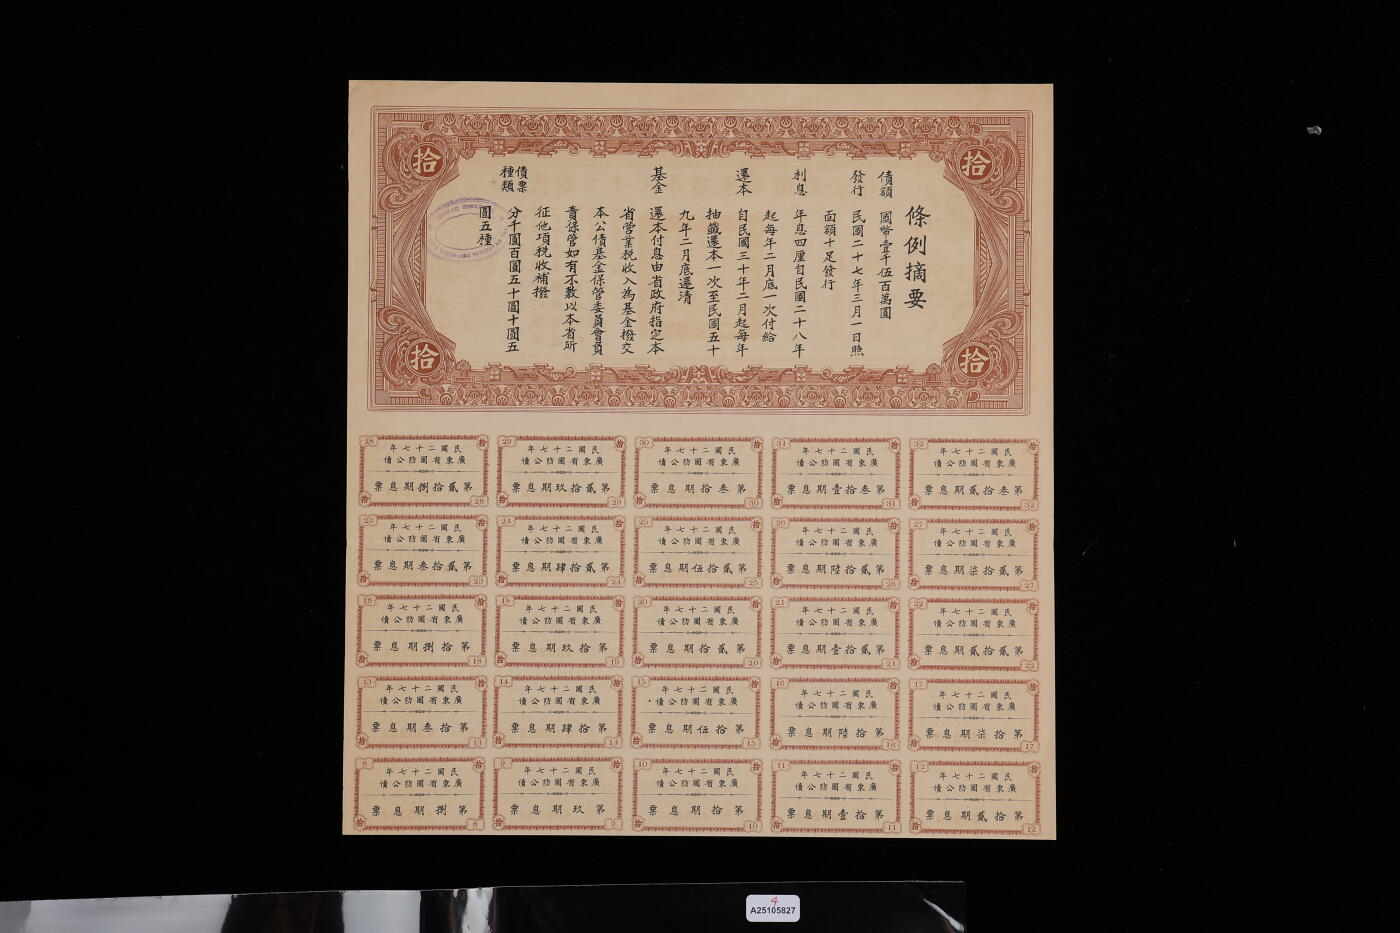 拾
拾
拾
拾
條例摘要
債額 國幣壹千伍百萬圓
發行 民國二十七年三月一日照
面額十足發行
利息 年息四厘自民國二十八年
起每年二月底一次付給
還本 自民國三十年二月起每年
抽籤還本一次至民國五十
九年二月底還清
基金 還本付息由省政府指定本
省營業稅收入為基金撥交
本公債基金保管委員會負
責保管如有不敷以本省所
徵他項稅收補撥
債票種類 分千圓百圓五十圓十圓五
圓五種
28 拾
民國二十七年
廣東省國防公債
第貳拾捌期息票
拾 28
29 拾
民國二十七年
廣東省國防公債
第貳拾玖期息票
拾 29
30 拾
民國二十七年
廣東省國防公債
第叁拾期息票
拾 30
31 拾
民國二十七年
廣東省國防公債
第叁拾壹期息票
拾 31
32 拾
民國二十七年
廣東省國防公債
第叁拾貳期息票
拾 32
23 拾
民國二十七年
廣東省國防公債
第貳拾叁期息票
拾 23
24 拾
民國二十七年
廣東省國防公債
第貳拾肆期息票
拾 24
25 拾
民國二十七年
廣東省國防公債
第貳拾伍期息票
拾 25
26 拾
民國二十七年
廣東省國防公債
第貳拾陸期息票
拾 26
27 拾
民國二十七年
廣東省國防公債
第貳拾柒期息票
拾 27
18 拾
民國二十七年
廣東省國防公債
第拾捌期息票
拾 18
19 拾
民國二十七年
廣東省國防公債
第拾玖期息票
拾 19
20 拾
民國二十七年
廣東省國防公債
第貳拾期息票
拾 20
21 拾
民國二十七年
廣東省國防公債
第貳拾壹期息票
拾 21
22 拾
民國二十七年
廣東省國防公債
第貳拾貳期息票
拾 22
13 拾
民國二十七年
廣東省國防公債
第拾叁期息票
拾 13
14 拾
民國二十七年
廣東省國防公債
第拾肆期息票
拾 14
15 拾
民國二十七年
廣東省國防公債
第拾伍期息票
拾 15
16 拾
民國二十七年
廣東省國防公債
第拾陸期息票
拾 16
17 拾
民國二十七年
廣東省國防公債
第拾柒期息票
拾 17
8 拾
民國二十七年
廣東省國防公債
第捌期息票
拾 8
9 拾
民國二十七年
廣東省國防公債
第玖期息票
拾 9
10 拾
民國二十七年
廣東省國防公債
第拾期息票
拾 10
11 拾
民國二十七年
廣東省國防公債
第拾壹期息票
拾 11
12 拾
民國二十七年
廣東省國防公債
第拾貳期息票
拾 12
4
A25105827